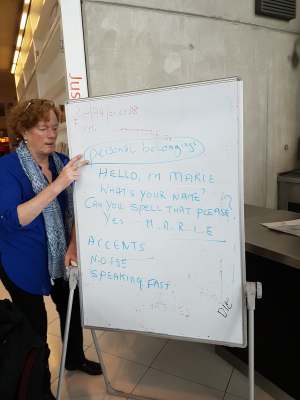 Jus
personal belongings
HELLO, I'M MARIE
WHAT'S YOUR NAME?
CAN YOU SPELL THAT PLEASE?
YES M.A.R.I.E
ACCENTS
NOISE
SPEAKING FAST